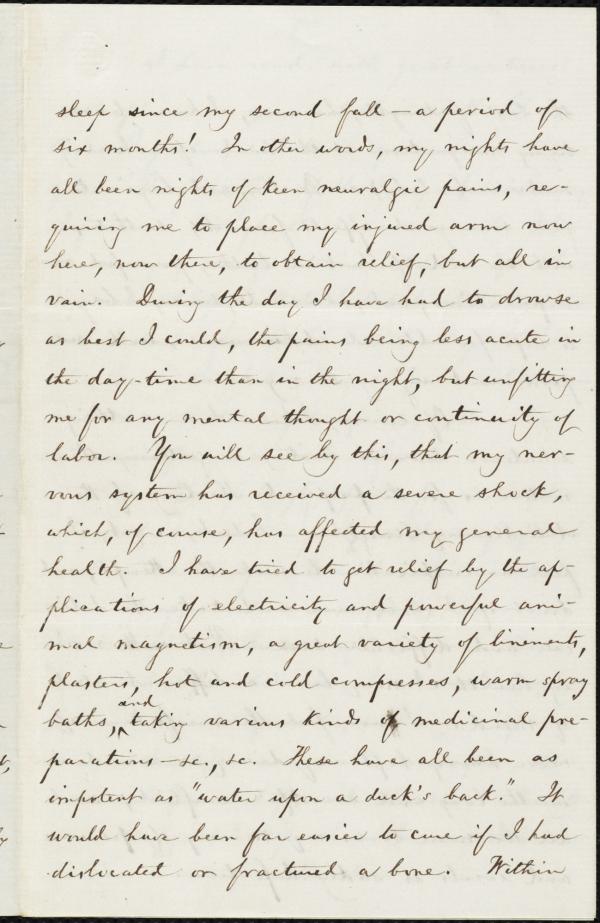 sleep since my second fall — a period of
six months! In other words, my nights have
all been nights of keen neuralgic pains, re-
quiring me to place my injured arm now
here, now there, to obtain relief, but all in
vain. During the day I have had to drowse
as best I could, the pains being less acute in
the day-time than in the night, but unfitting
me for any mental thought or continuity of
labor. You will see by this, that my ner-
vous system has received a severe shock,
which, of course, has affected my general
health. I have tried to get relief by the ap-
plications of electricity and powerful ani-
mal magnetism, a great variety of liniments,
plasters, hot and cold compresses, warm spray
baths, and taking various kinds of medicinal pre-
parations — &c., &c. These have all been as
impotent as "water upon a duck's back." It
would have been far easier to cure if I had
dislocated or fractured a bone. Within